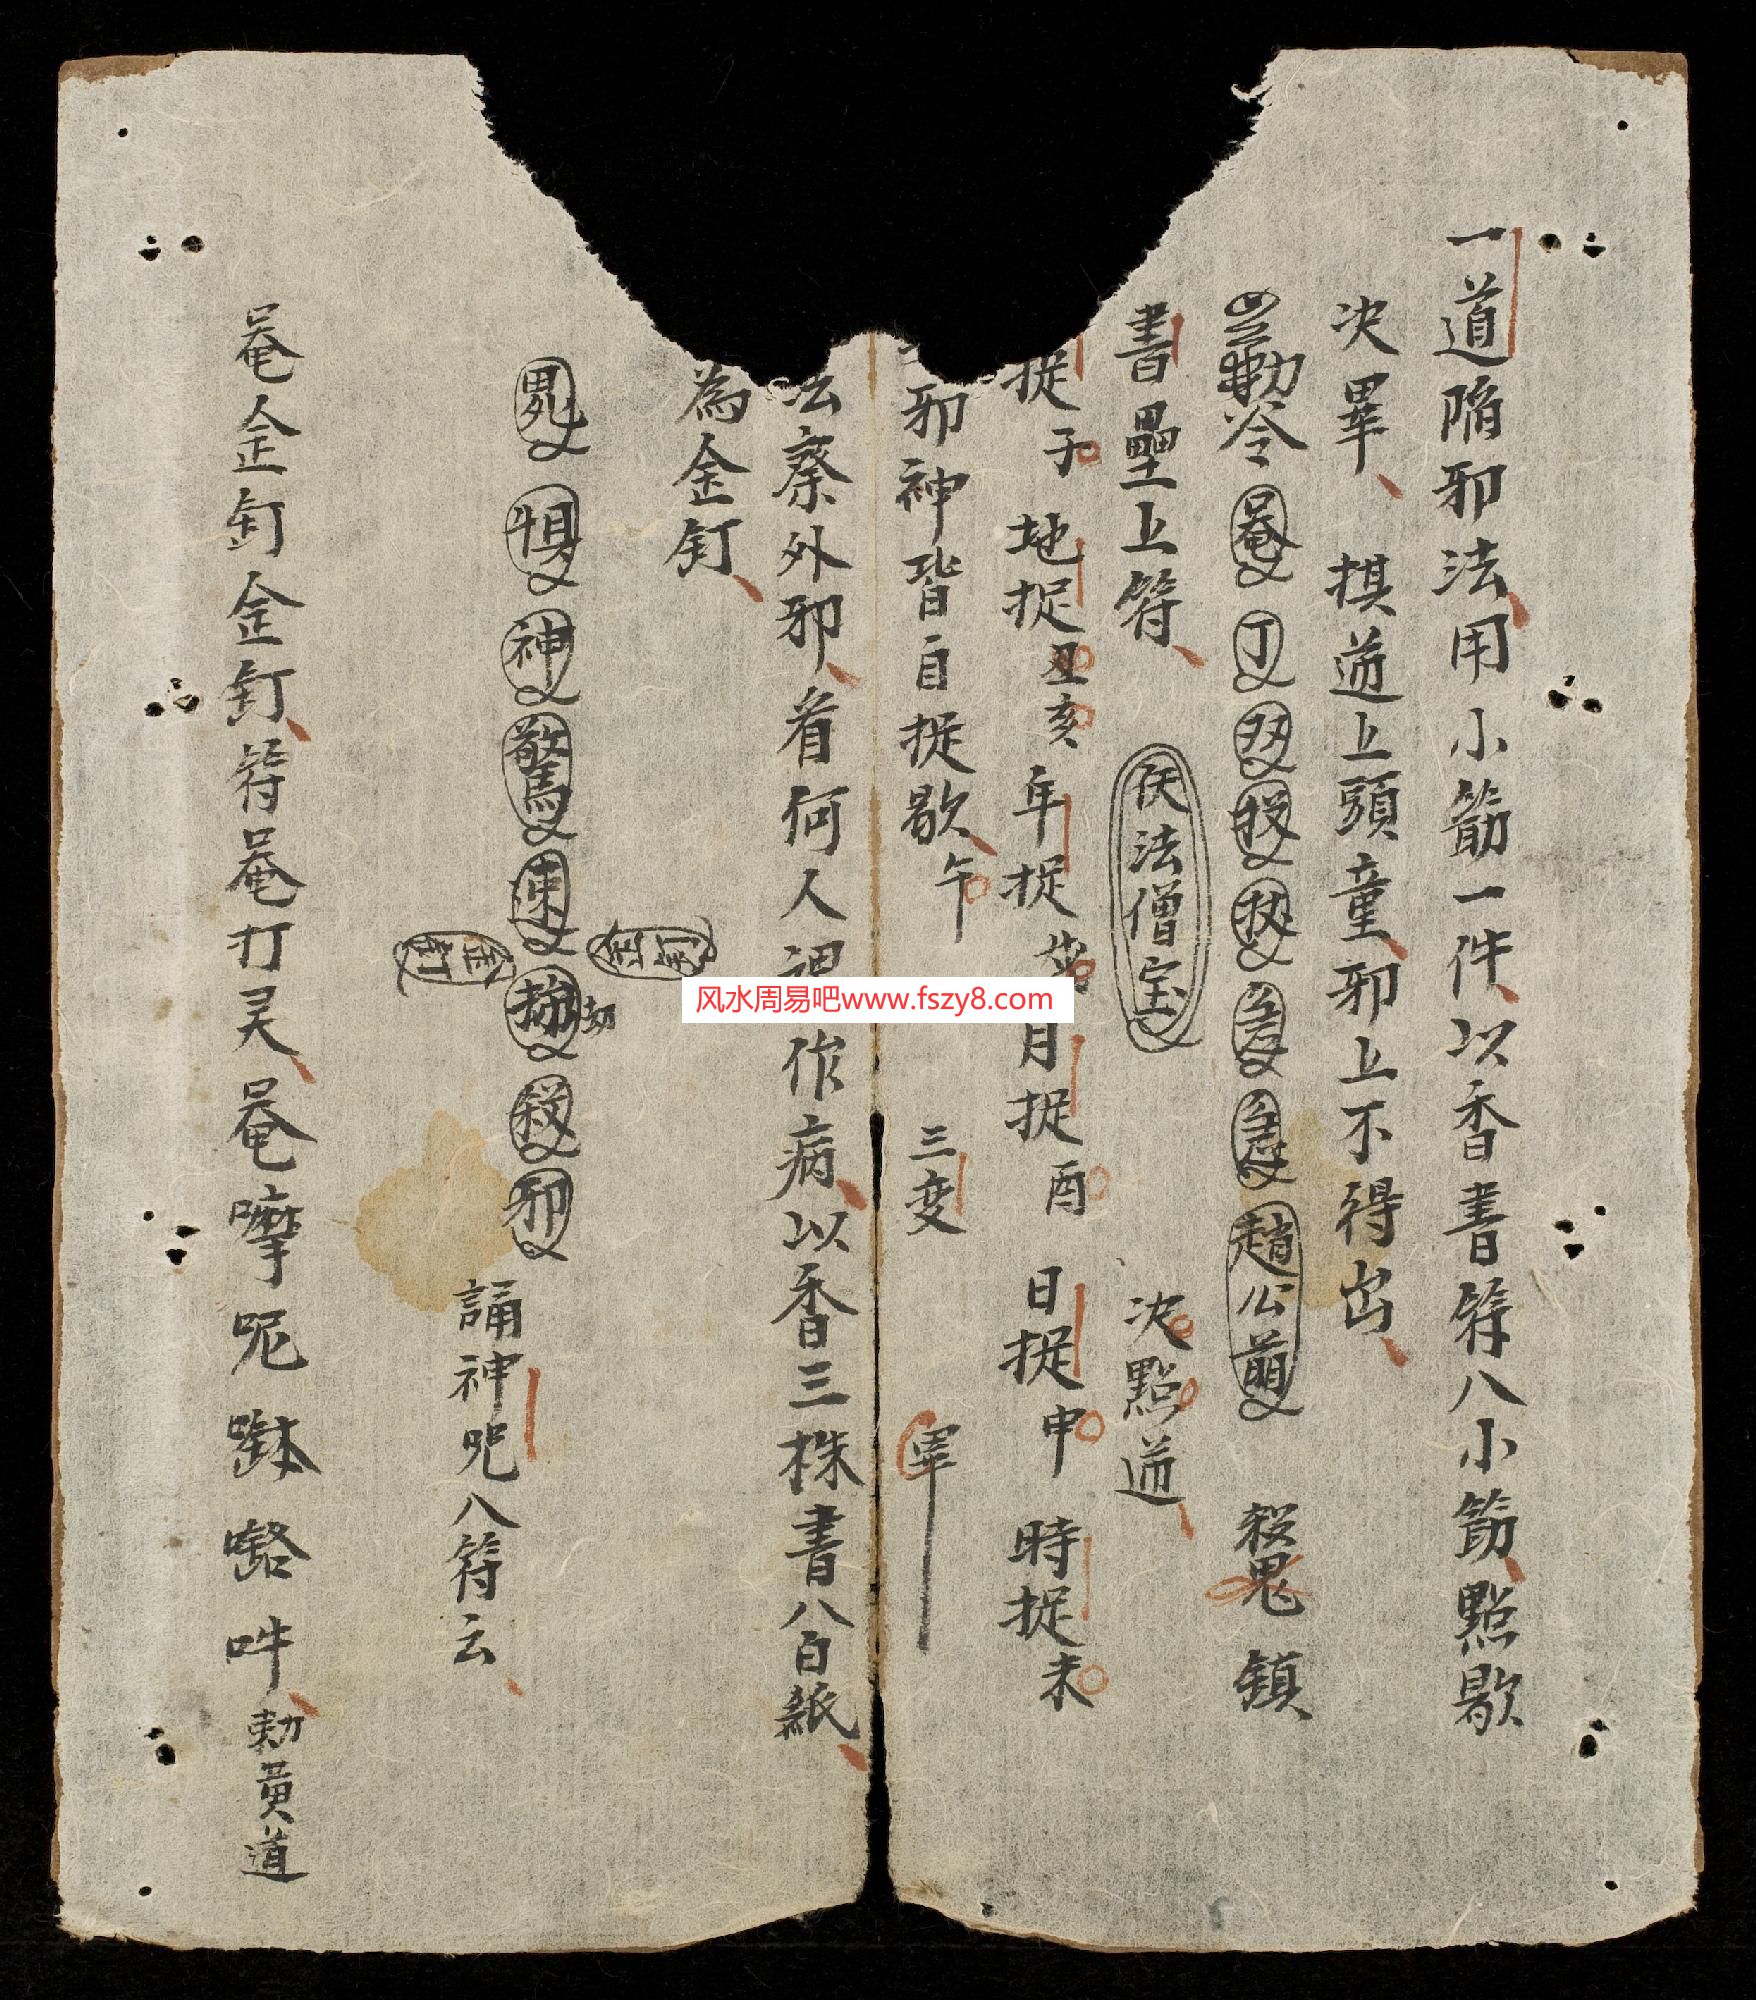 一道陷邪法用小筯一件以香書符八小筯點歇
决畢 棋道上頭童邪上不得出
勅令 唵 丁 急 急 趙公萌 殺鬼 鎮
書壘上符 伏法僧宝 决點道
捉子 地捉丑亥 年捉 月捉酉 日捉申 時捉未
邪神皆自捉歇午 三变
法察外邪看何人 作病以香三株書八百紙
為金釘
惧 神 驚 速 殺 邪
金釘
金釘
誦神咒八符云
唵金釘金釘符唵打灵唵嚤呢 吽勅黄道
风水周易吧www.fszy8.com